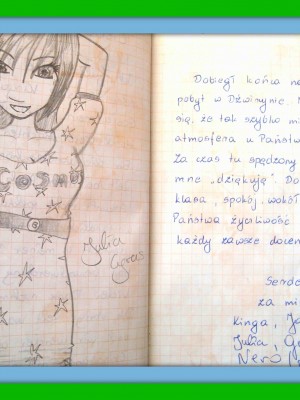 COSMO
Julia
Dobiegł końca na
pobyt w Dźwirzynie
się, że tak szybko mi
atmosfera u Państwa
Za czas tu spędzony
mnc „dziękuję”. Do
klasa, spokój wokół
Państwa życzliwość
każdy zawsze docen
Serde
za mi
Kinga, Ja
Julia,
Nero